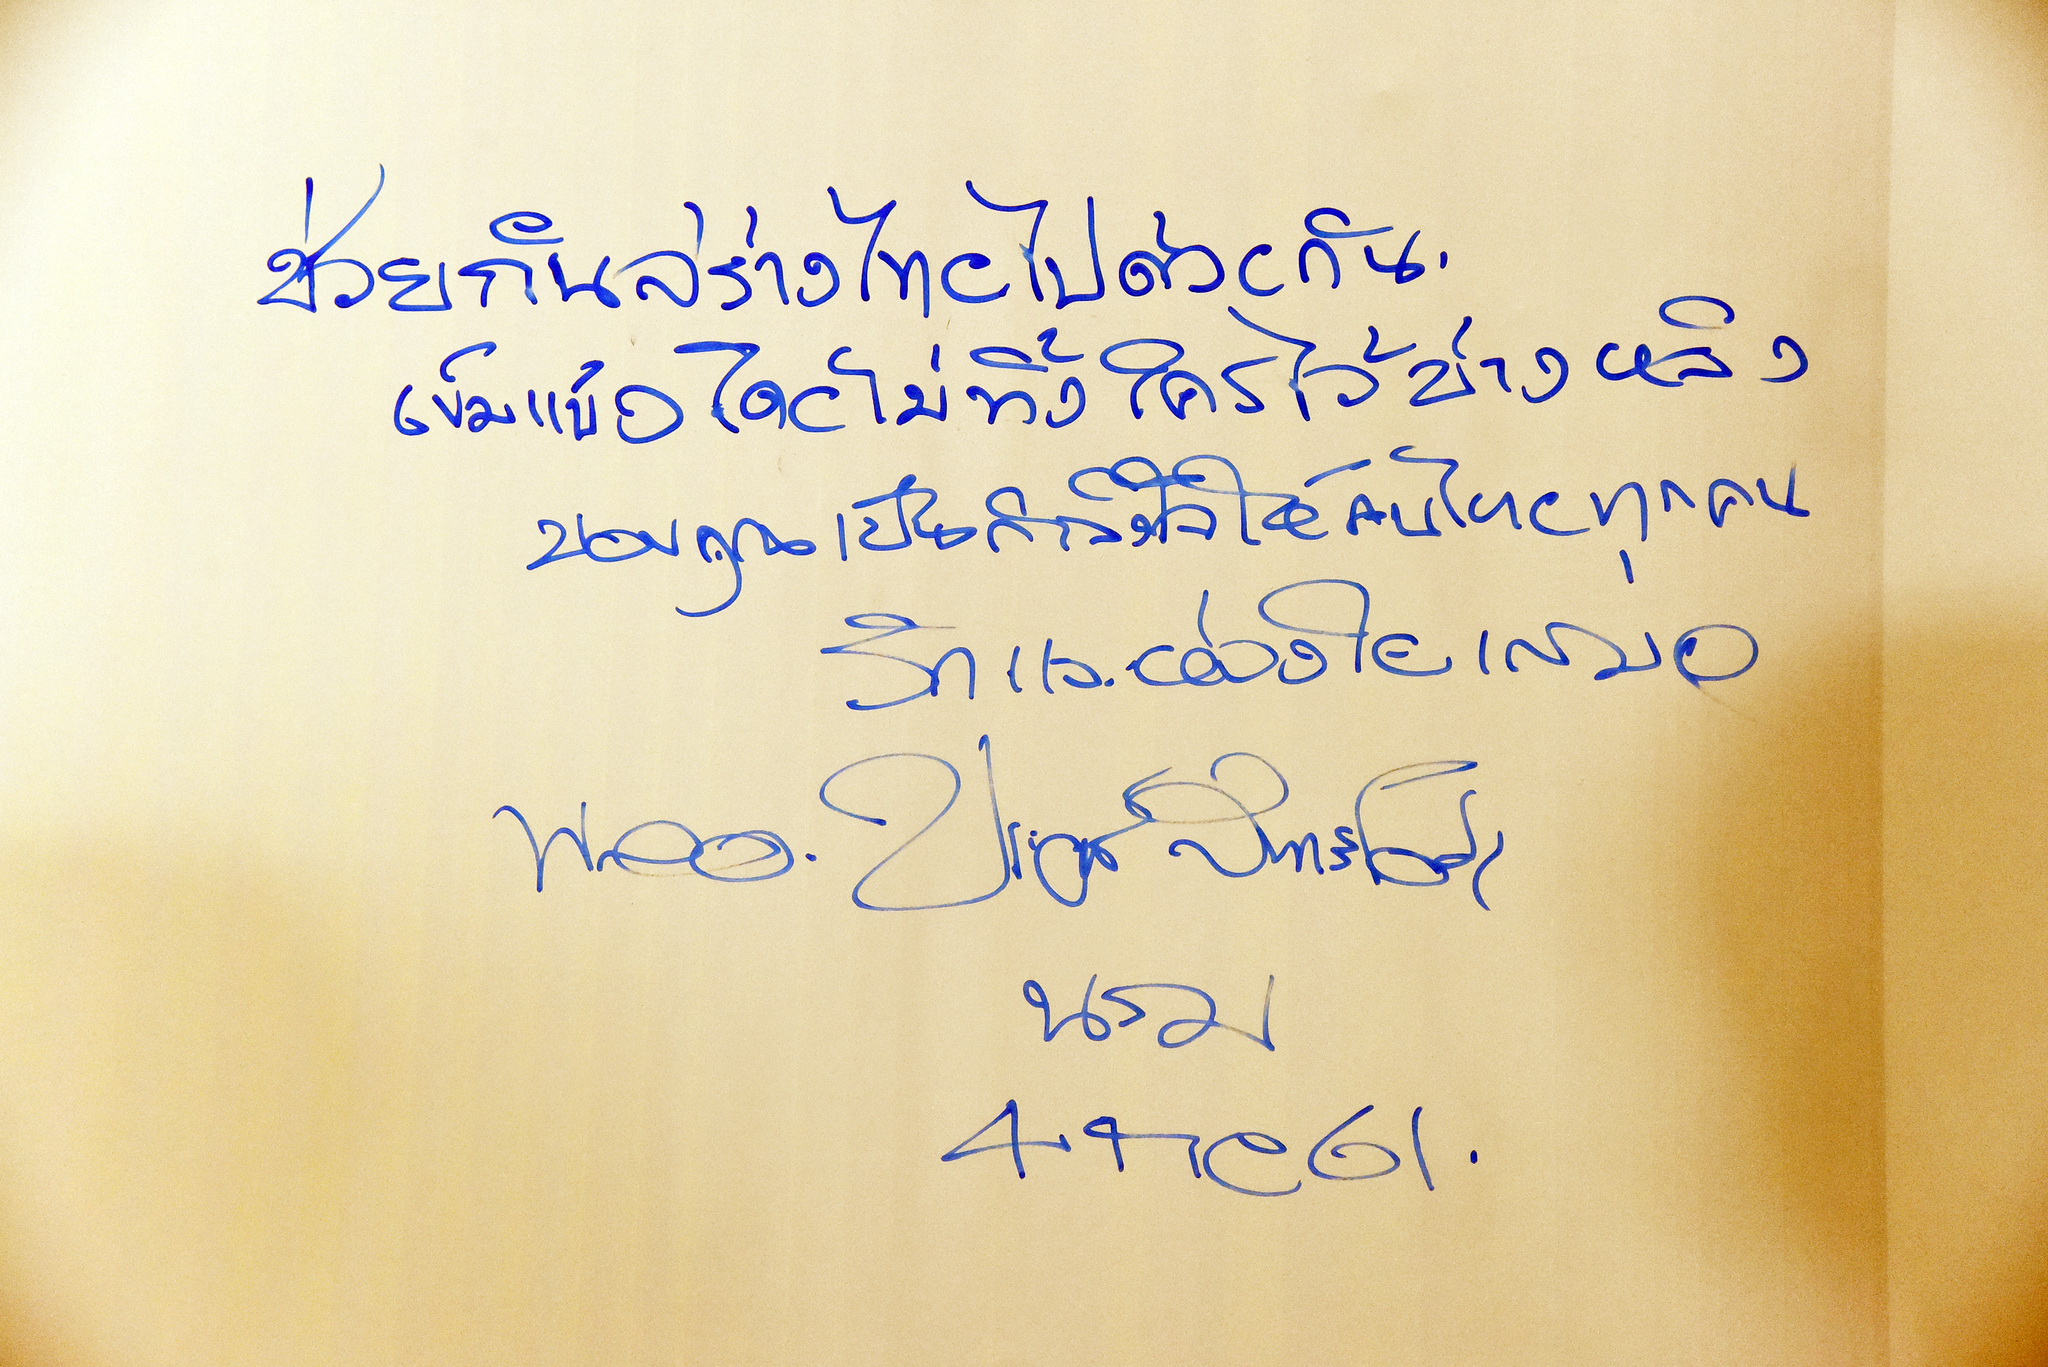 ช่วยกันสร้างไทยไปด้วยกัน.
เข้มแข็ง โดยไม่ทิ้งใครไว้ข้างหลัง
ขอบคุณ เป็นกำลังใจให้คนไทยทุกคน
รักและห่วงใยเสมอ
พลอ. ประยุทธ์ จันทร์โอชา
นรม
4
61.